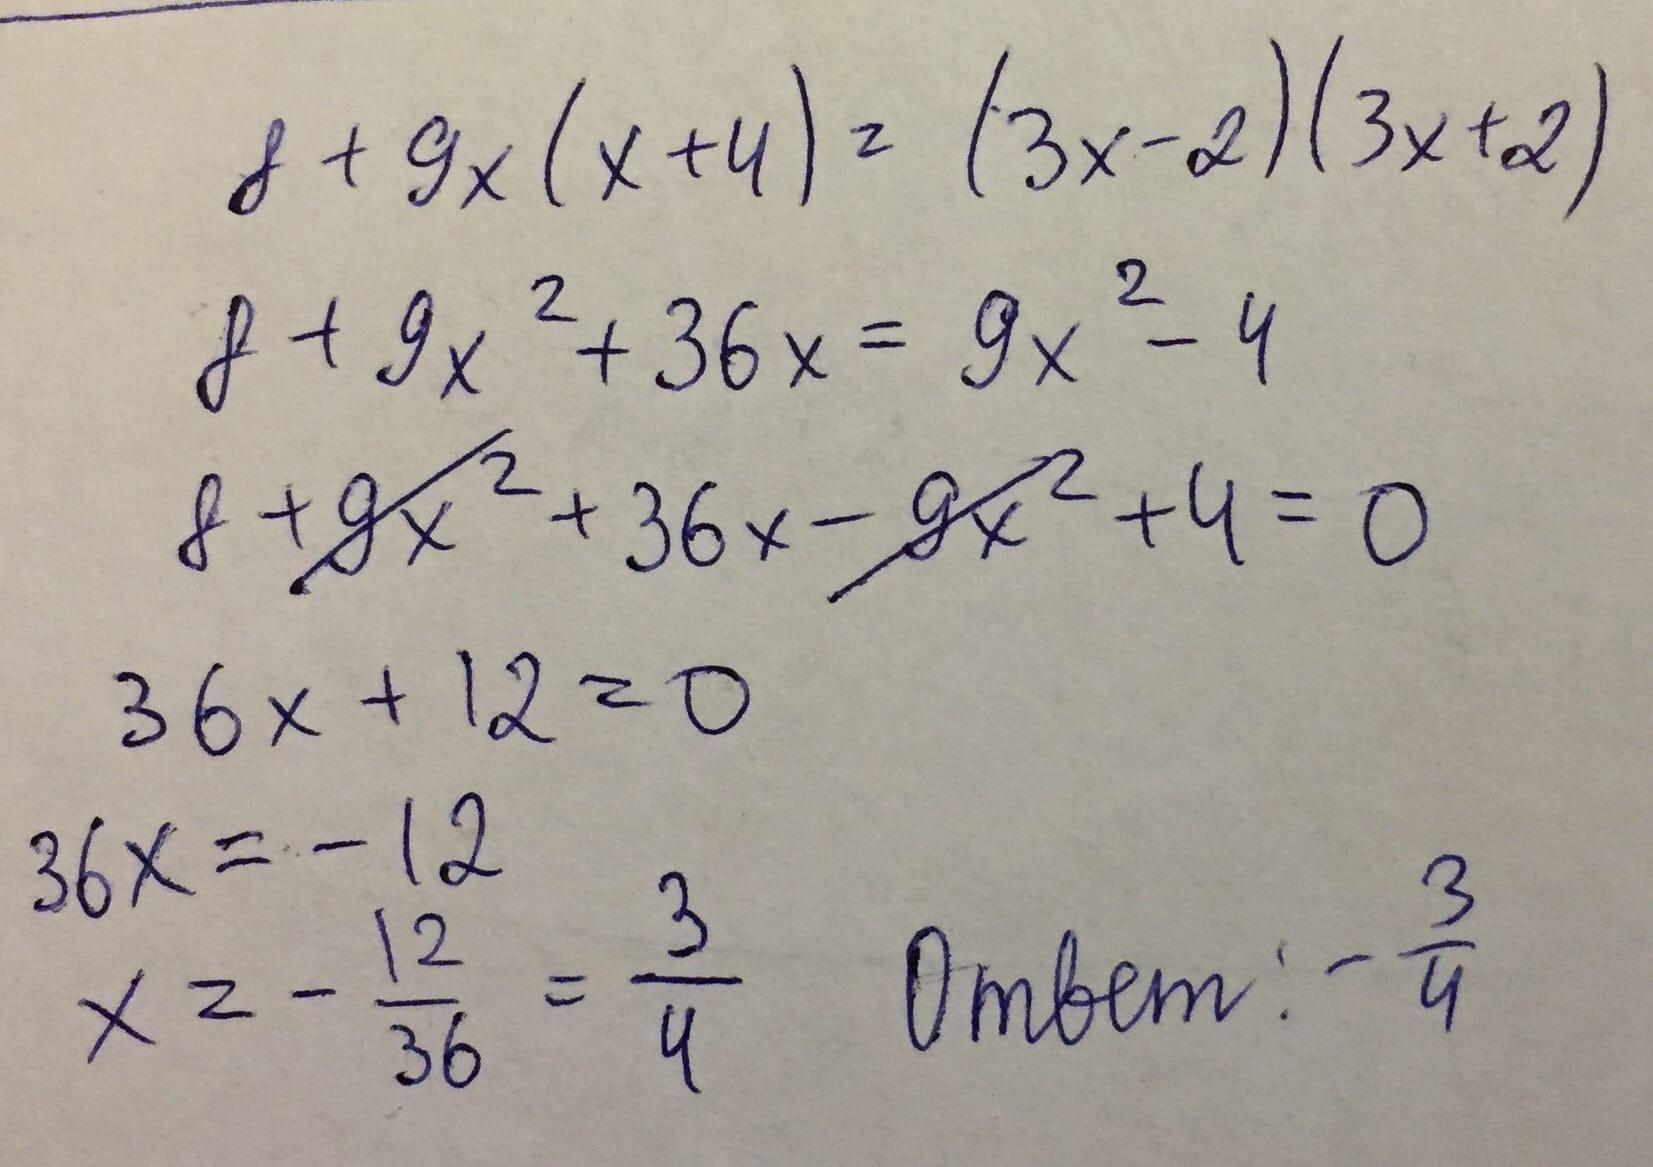 8 + 9x(x+4) = (3x-2)(3x+2)
8 + 9x² + 36x = 9x² - 4
8 + 9x² + 36x - 9x² + 4 = 0
36x + 12 = 0
36x = -12
x = - 12/36 = 3/4 Ответ: - 3/4